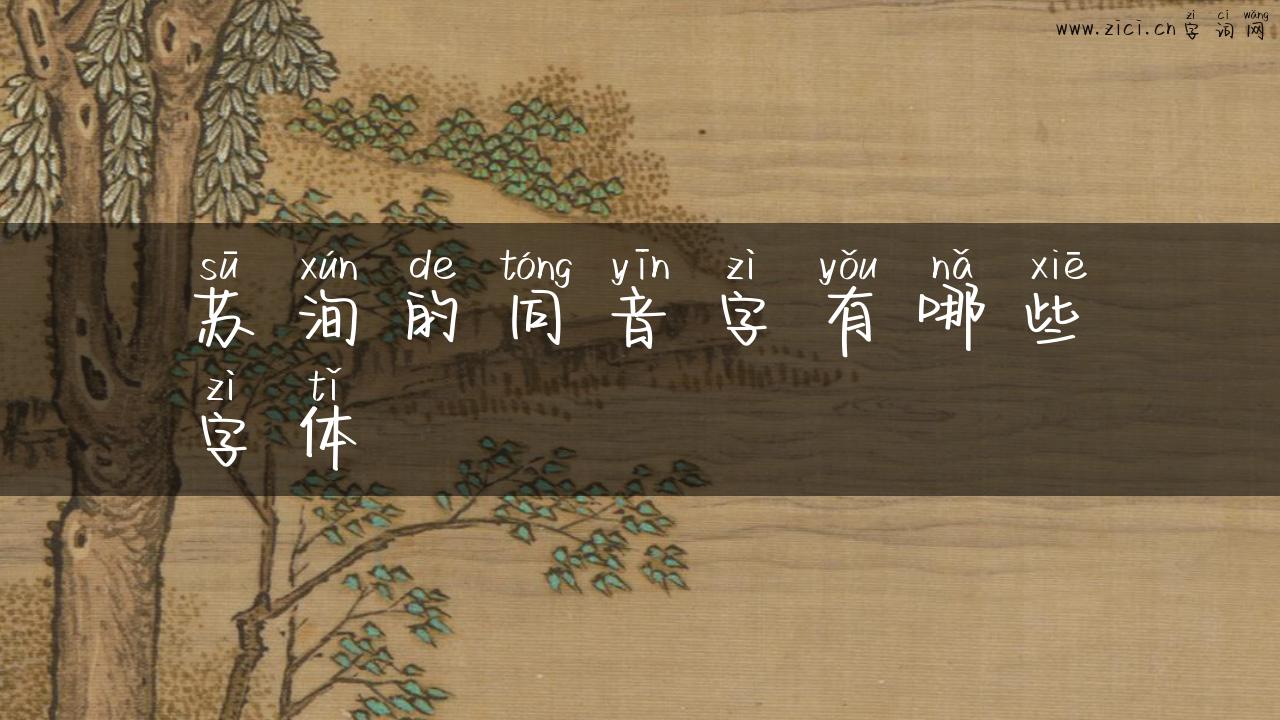 zì cí wǎng
www.zici.cn 字词网
sū xún de tóng yīn zì yǒu nǎ xiē
苏洵的同音字有哪些
zì tǐ
字体